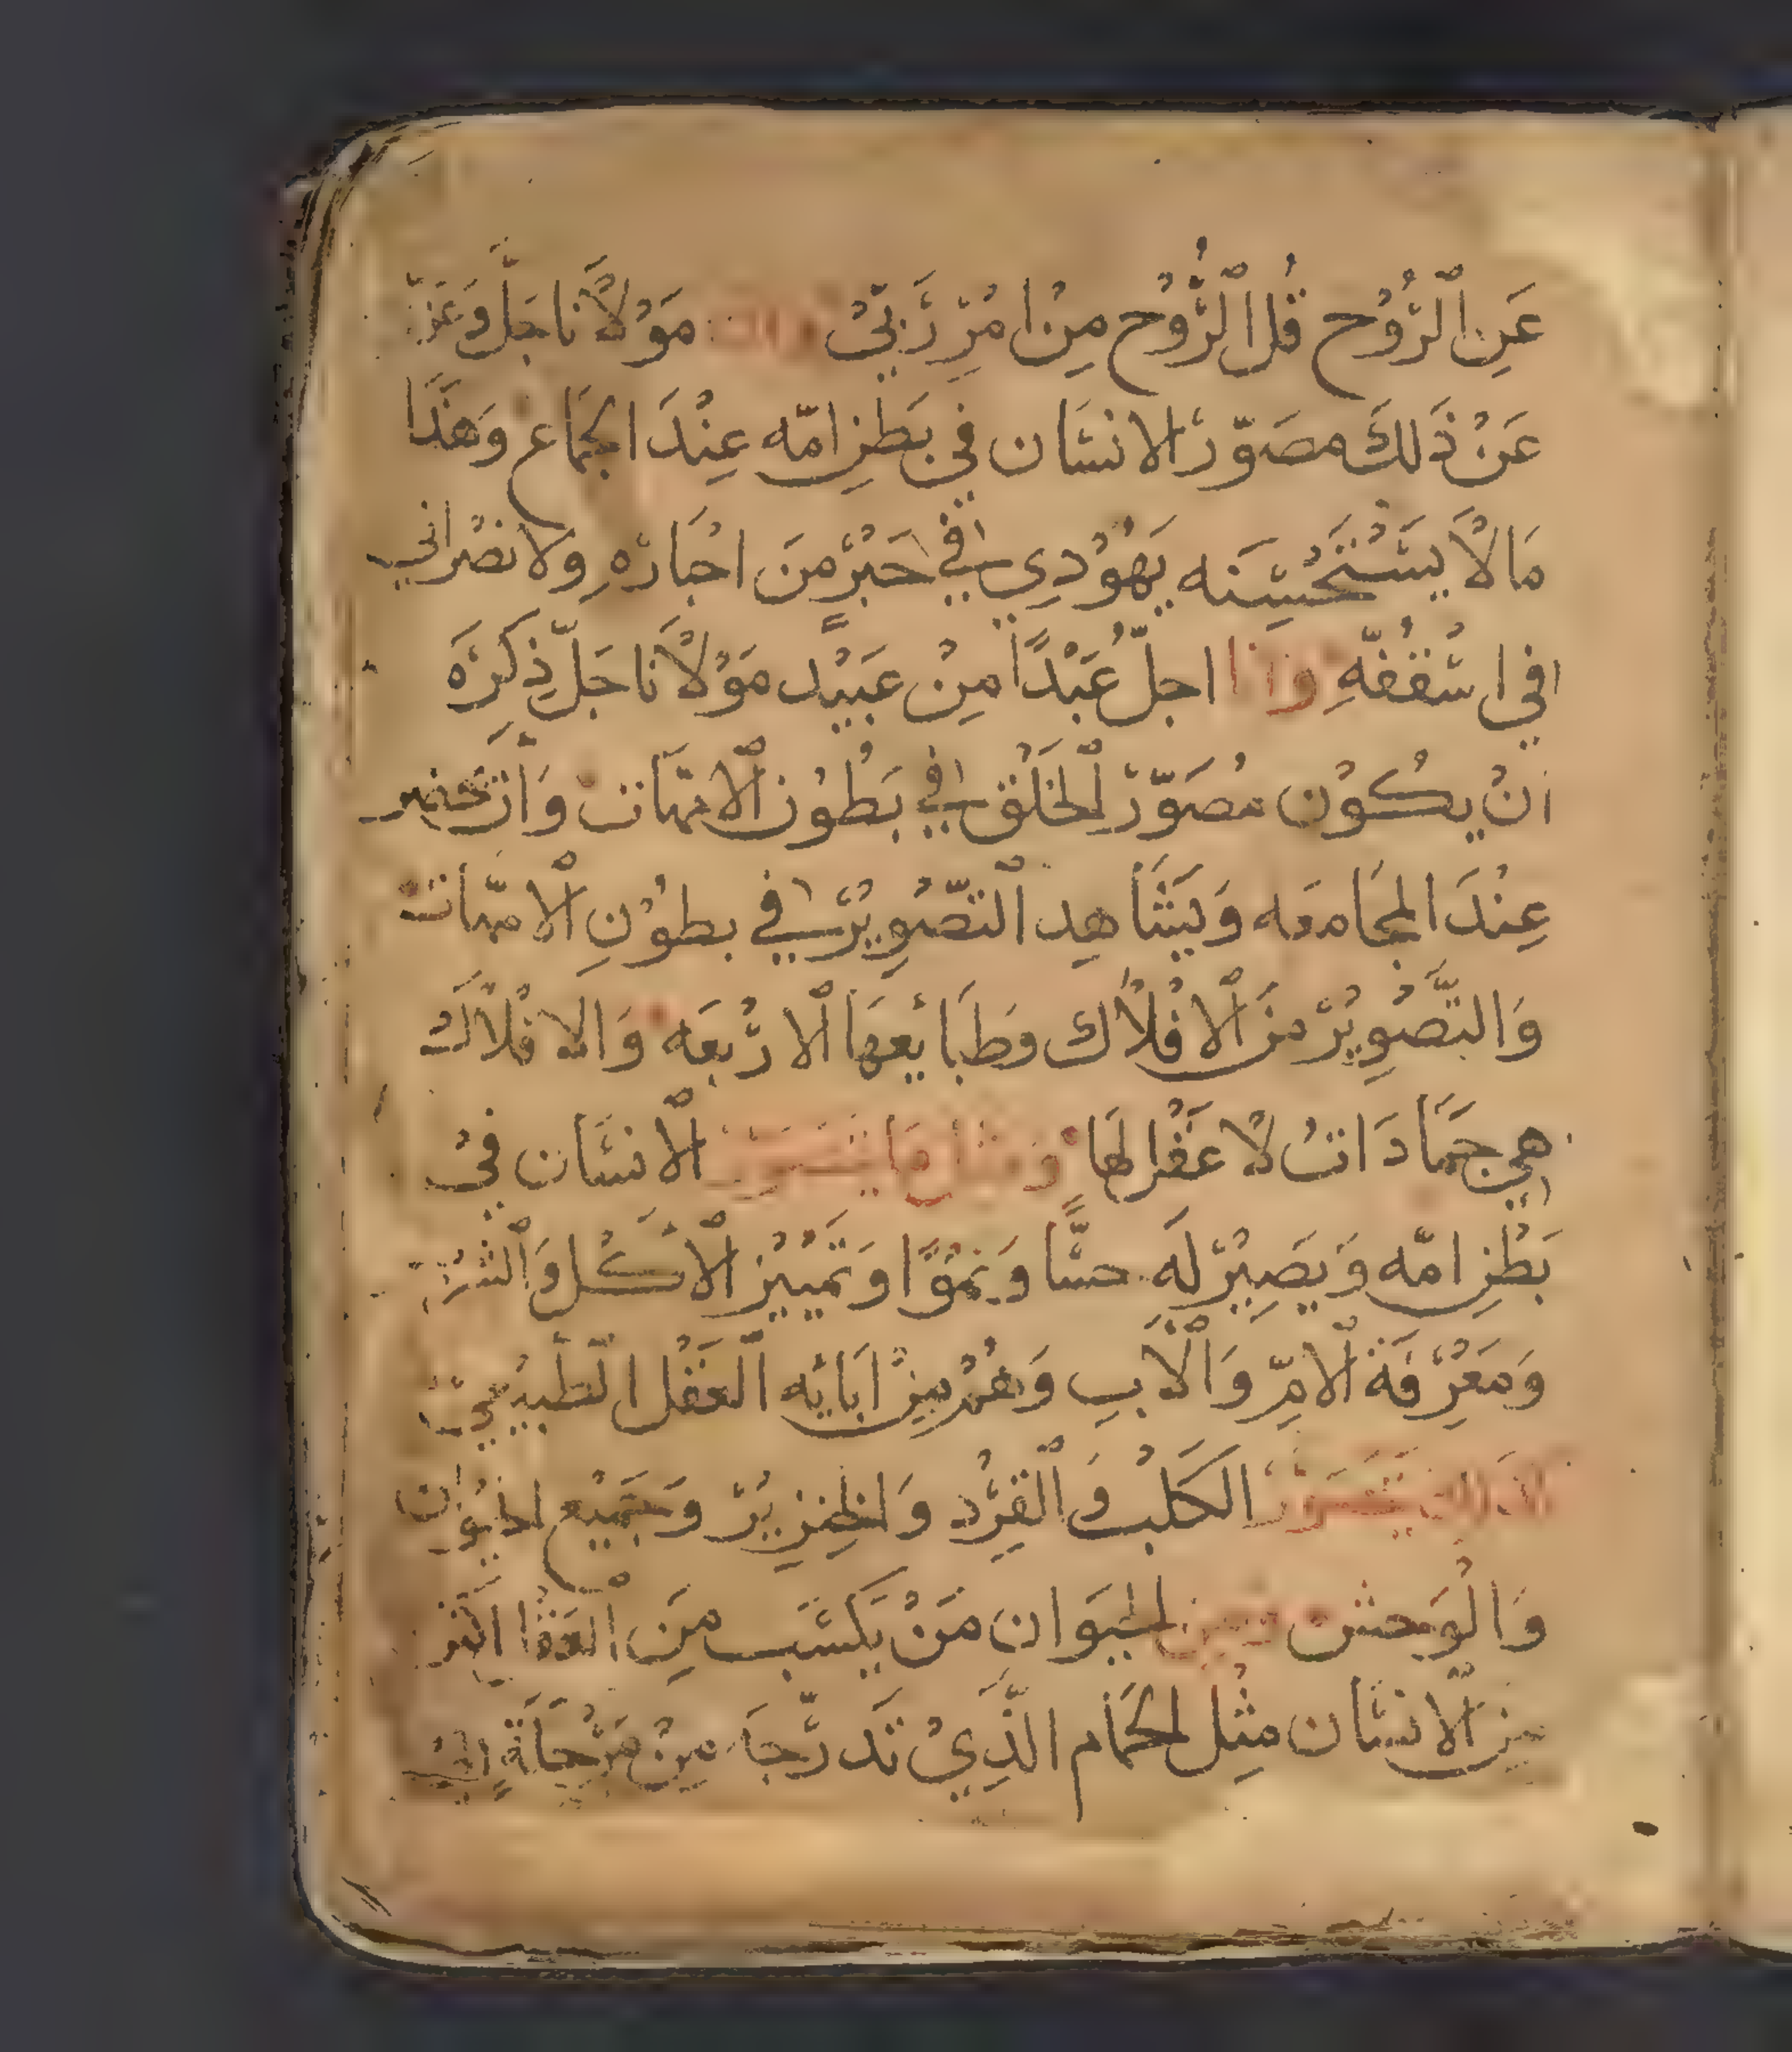 عَنِ ٱلرُّوْح قُل ٱلرُّوْح مِنْ امْرِ رَبّيْ مَوْلَانا جَلَّ وَعَزّ
عَنْ ذَلكَ مصَوّرْ الانسَان في بَطنِ امّه عِنْدَ الجمَاع وَهَذَا
مَا لَا يَسْتَحْسِنَه يَهُوْدِي في حَبْرٍ مَنَ احْبَارهِ وَلا نصْراني
في اسْقفُفّهِ وانا اجلّ عَبْدًا مِنْ عَبيْد مَوْلَانَا جَلّ ذِكرَه
انْ يكُوْن مُصَوّرْ الخَلْق في بَطُوْن ٱلامّهَات وَان يحضر
عِنْدَ المجَامعَه وَيَشَاهِد ٱلتصّوِيْرْ في بطوْنِ ٱلامّهات
وَالتَّصْوِيْرْ منَ ٱلافْلَاك وَطَبَايعهَا ٱلارْبعَه وَالافْلَاكْ
هي جَمَادَاتْ لا عَقْل لهَا وَمثل مَا يتصَوّر ٱلانسَان فيْ
بَطْنِ امّه وَيَصِيْرْ لَه حسًّا وَنموًا وَتَمْييْز ٱلاكْل وَٱلشرْب
وَمَعْرِفَة ٱلامّ وَٱلابِ وَغيْرهمْ مِنْ آبَائِه ٱلعَقْل ٱلطبيْعيْ
كذلك يتصَوّرْ الكَلبْ وَٱلقِرْد وَالخنزِيْرْ وَجَميْع الحيوَان
وَالْوَحش ومن الحيَوَان مَنْ يَكسَب مِنَ ٱلوَفَا اكثر
مِنَ ٱلانسَان مثْل الحمَام الذَّيْ تَدرّجَا مِنْ مَرْحلَةٍ الىْ